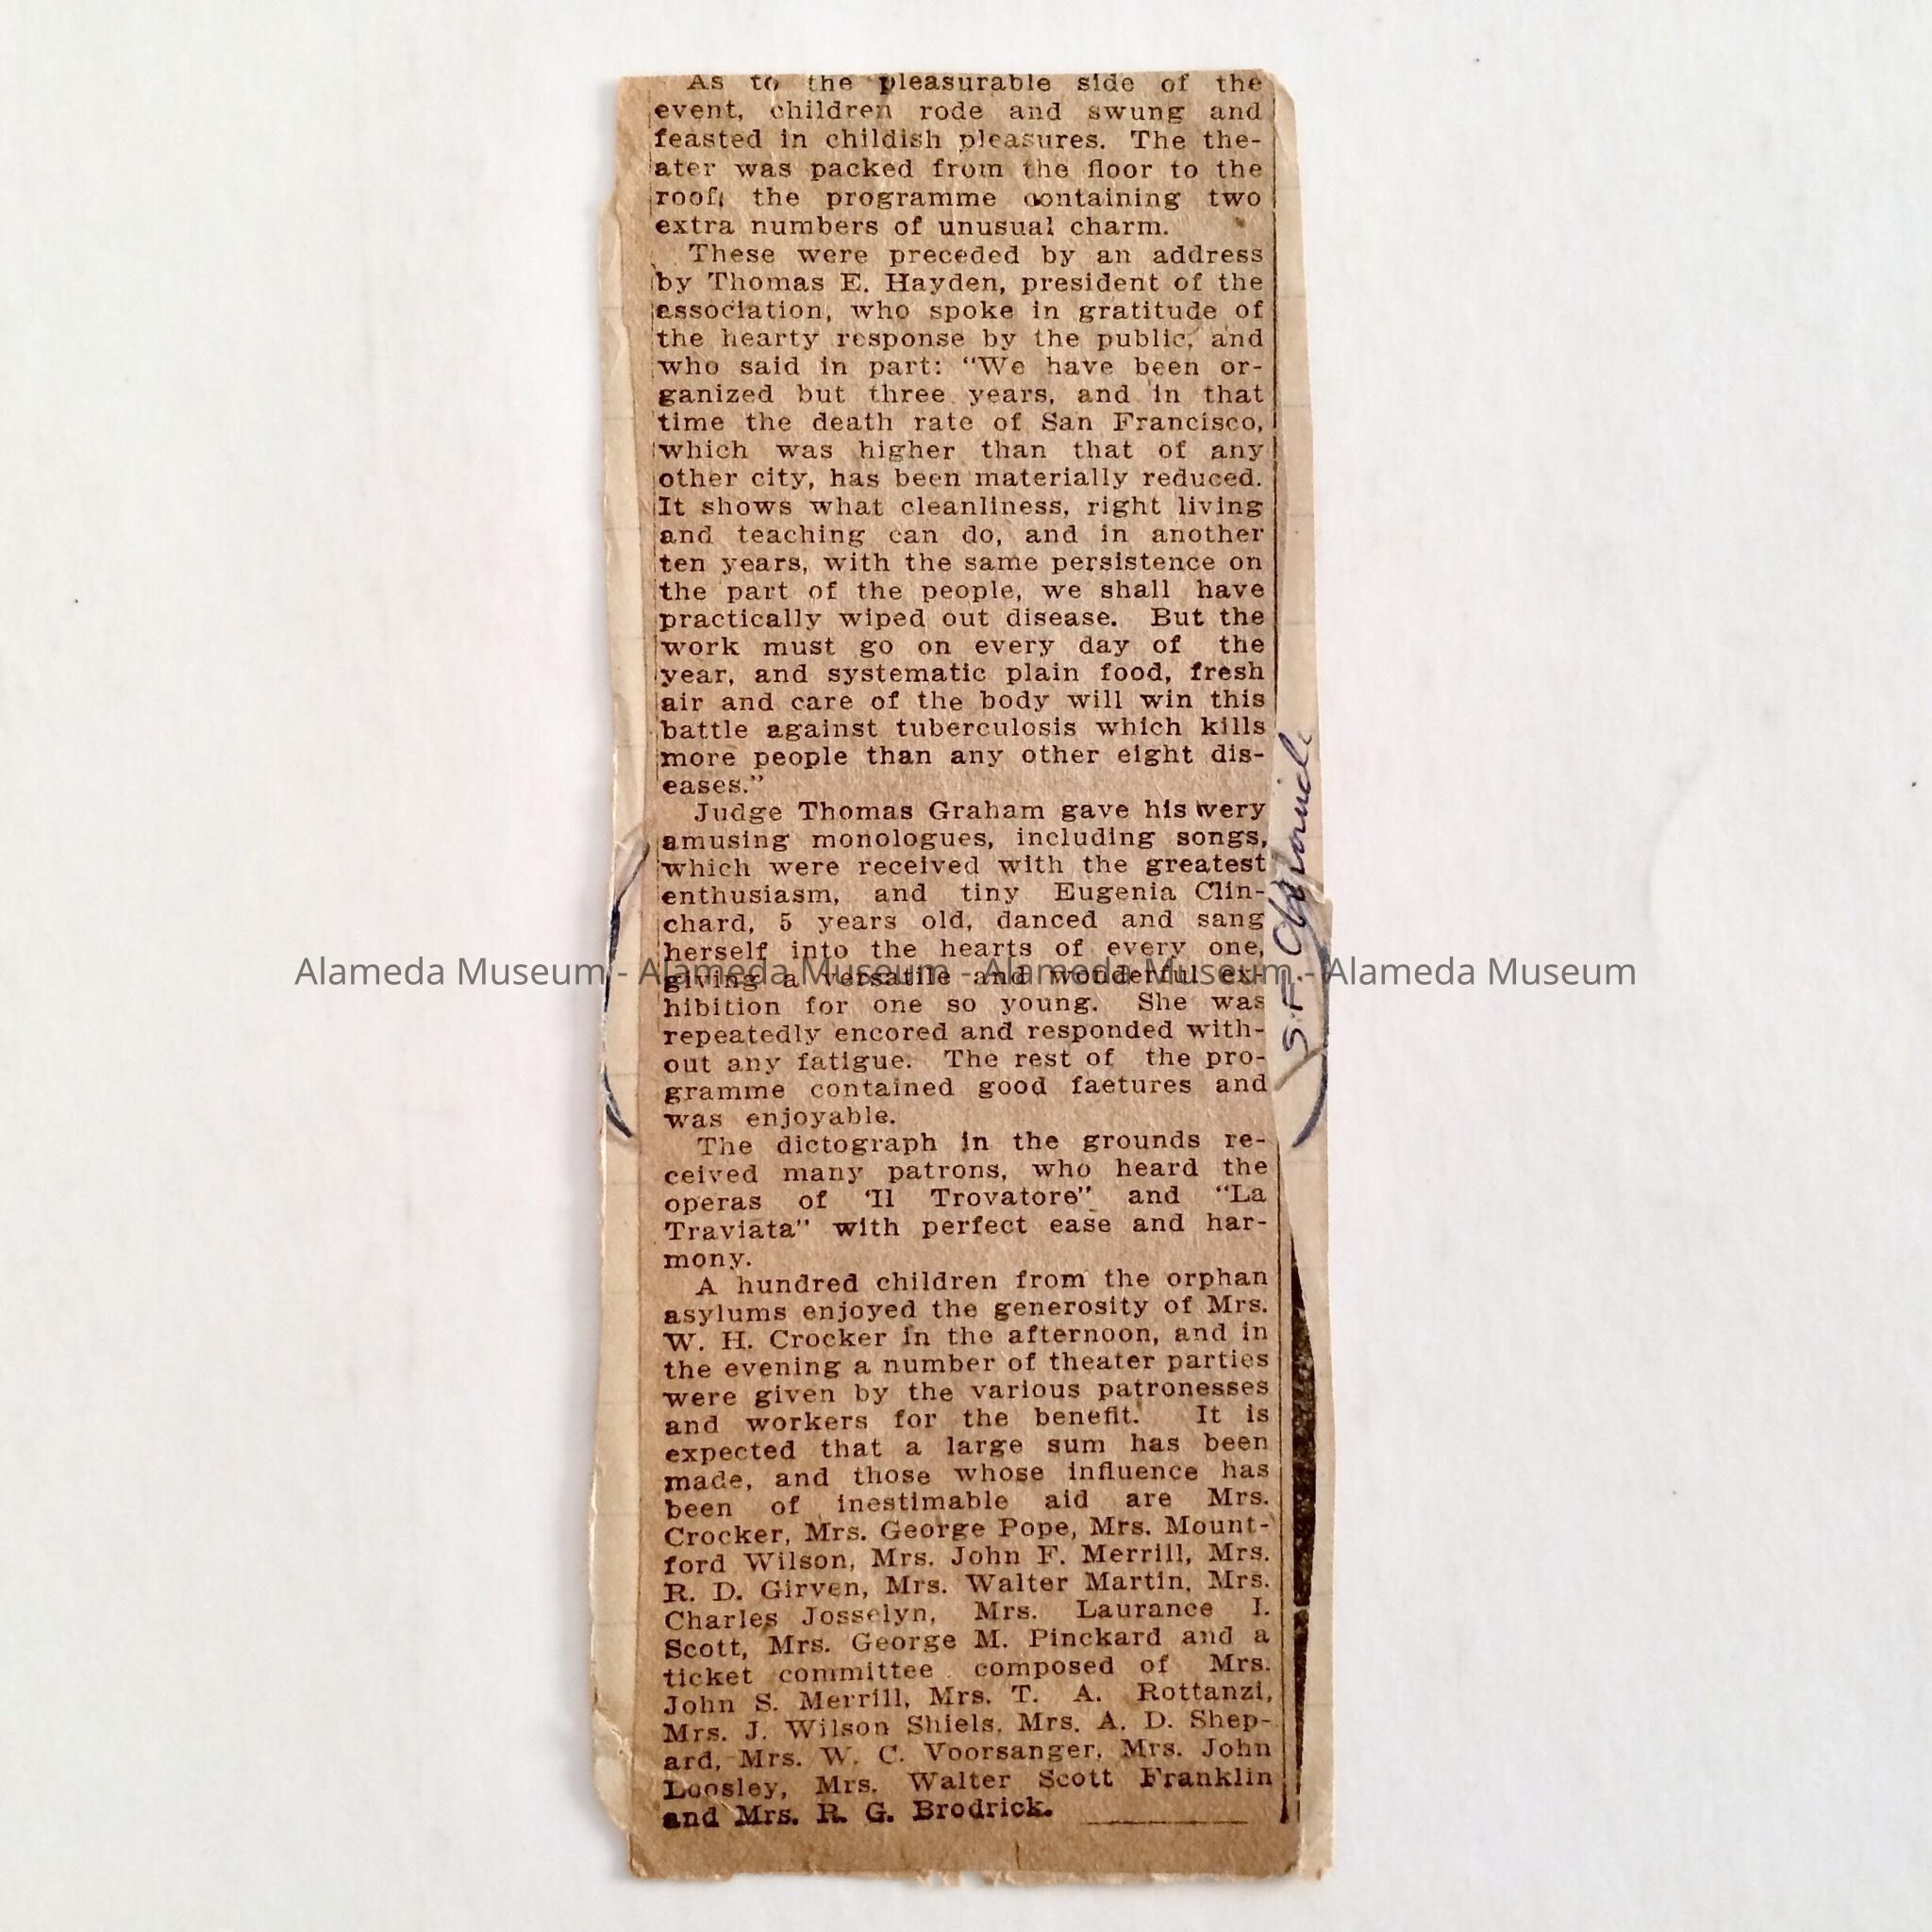 As to the pleasurable side of the
event, children rode and swung and
feasted in childish pleasures. The the-
ater was packed from the floor to the
roof, the programme containing two
extra numbers of unusual charm.
These were preceded by an address
by Thomas E. Hayden, president of the
association, who spoke in gratitude of
the hearty response by the public, and
who said in part: "We have been or-
ganized but three years, and in that
time the death rate of San Francisco,
which was higher than that of any
other city, has been materially reduced.
It shows what cleanliness, right living
and teaching can do, and in another
ten years, with the same persistence on
the part of the people, we shall have
practically wiped out disease. But the
work must go on every day of the
year, and systematic plain food, fresh
air and care of the body will win this
battle against tuberculosis which kills
more people than any other eight dis-
eases."
Judge Thomas Graham gave his very
amusing monologues, including songs,
which were received with the greatest
enthusiasm, and tiny Eugenia Clin-
chard, 5 years old, danced and sang
herself into the hearts of every one,
giving a versatile and wonderful ex-
hibition for one so young. She was
repeatedly encored and responded with-
out any fatigue. The rest of the pro-
gramme contained good faetures and
was enjoyable.
The dictograph in the grounds re-
ceived many patrons, who heard the
operas of 'Il Trovatore" and "La
Traviata" with perfect ease and har-
mony.
A hundred children from the orphan
asylums enjoyed the generosity of Mrs.
W. H. Crocker in the afternoon, and in
the evening a number of theater parties
were given by the various patronesses
and workers for the benefit. It is
expected that a large sum has been
made, and those whose influence has
been of inestimable aid are Mrs.
Crocker, Mrs. George Pope, Mrs. Mount-
ford Wilson, Mrs. John F. Merrill, Mrs.
R. D. Girven, Mrs. Walter Martin, Mrs.
Charles Josselyn, Mrs. Laurance I.
Scott, Mrs. George M. Pinckard and a
ticket committee composed of Mrs.
John S. Merrill, Mrs. T. A. Rottanzi,
Mrs. J. Wilson Shiels, Mrs. A. D. Shep-
ard, Mrs. W. C. Voorsanger, Mrs. John
Loosley, Mrs. Walter Scott Franklin
and Mrs. R. G. Brodrick.
S.F. Chronicle
Alameda Museum - Alameda Museum - Alameda Museum - Alameda Museum